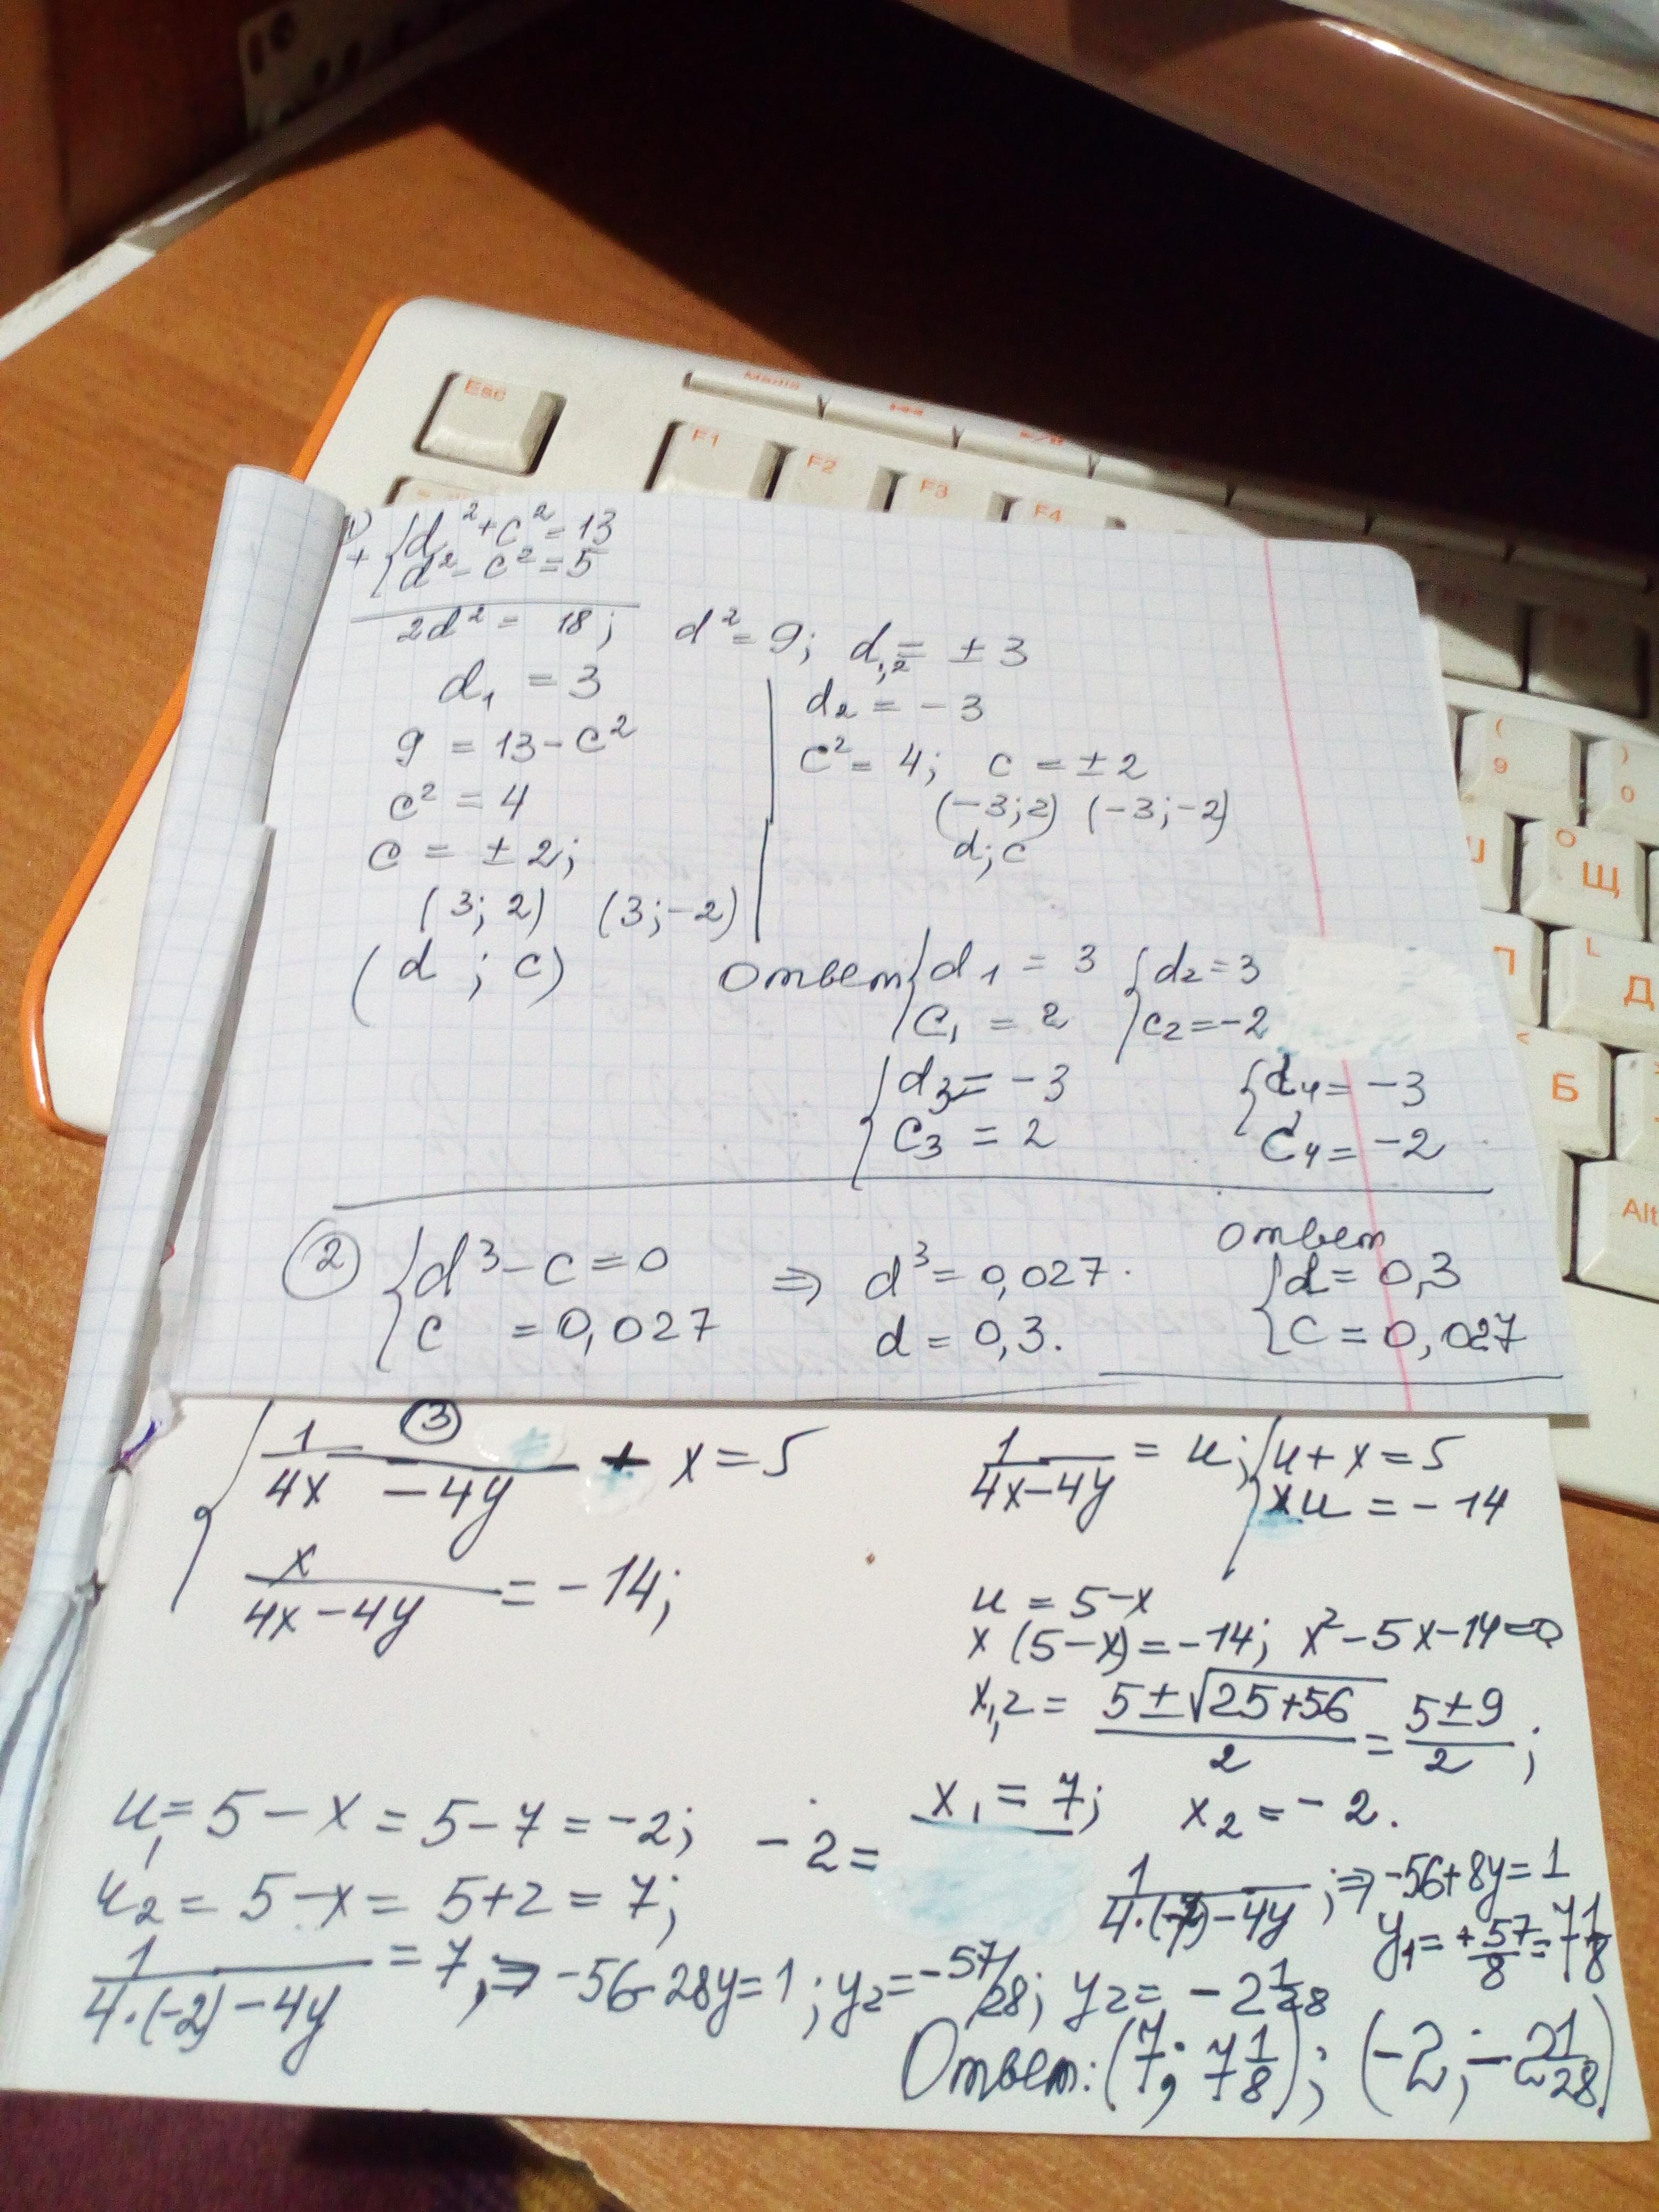 Esc
Media
F1
F2
F3
F4
( 9
) 0
Щ
Д
Б
Alt
1)
+ { d² + c² = 13
d² - c² = 5
2d² = 18; d² = 9; d₁,₂ = ± 3
d₁ = 3
9 = 13 - c²
c² = 4
c = ± 2;
(3; 2) (3; -2)
(d ; c)
d₂ = - 3
c² = 4; c = ± 2
(-3; 2) (-3; -2)
d; c
Ответ { d₁ = 3 { d₂ = 3
c₁ = 2 c₂ = -2
{ d₃ = - 3 { d₄ = - 3
c₃ = 2 c₄ = - 2
② { d³ - c = 0 ⇒ d³ = 0,027.
c = 0,027 d = 0,3.
Ответ
{ d = 0,3
c = 0,027
③
{ 1/(4x - 4y) + x = 5
x/(4x - 4y) = - 14;
1/(4x - 4y) = u; { u + x = 5
xu = - 14
u = 5 - x
x (5 - x) = - 14; x² - 5x - 14 = 0
x₁,₂ = (5 ± √(25 + 56))/2 = (5 ± 9)/2;
x₁ = 7; x₂ = - 2.
u₁ = 5 - x = 5 - 7 = -2; - 2 =
1/(4·(7) - 4y); ⇒ -56 + 8y = 1
u₂ = 5 - x = 5 + 2 = 7;
y₁ = + 57/8 = 7 1/8
1/(4·(-2) - 4y) = 7, ⇒ -56 - 28y = 1; y₂ = -57/28; y₂ = - 2 1/28
Ответ: (7; 7 1/8); (-2; - 2 1/28)